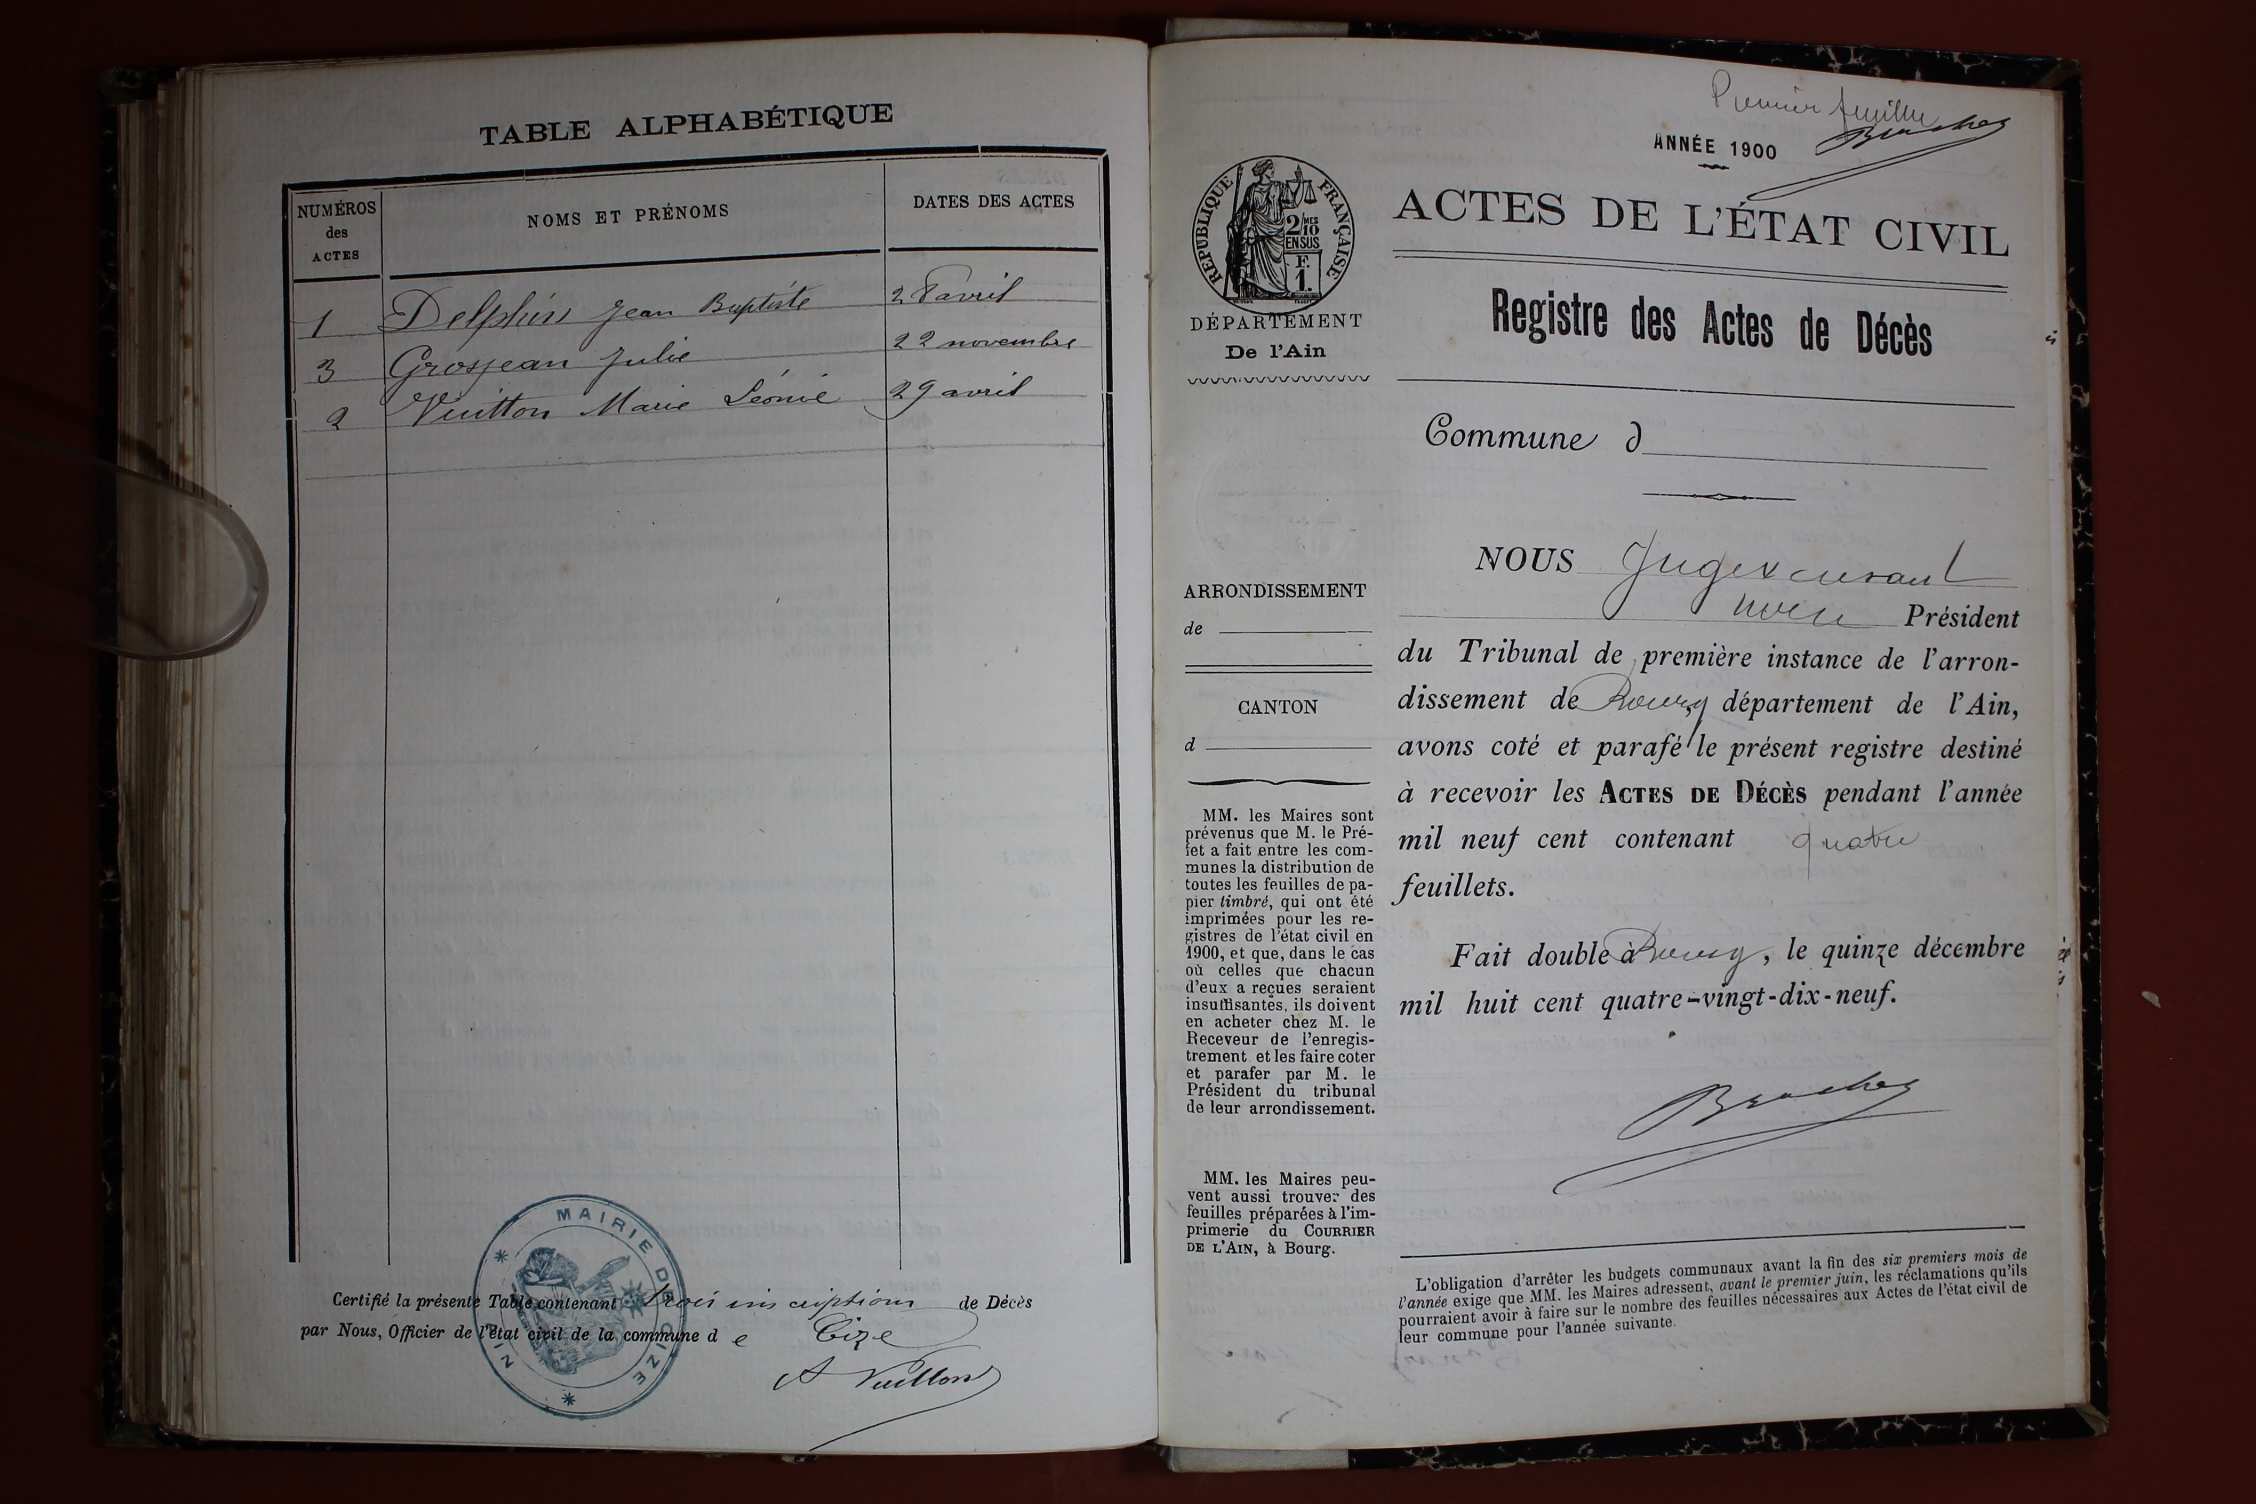 TABLE ALPHABÉTIQUE
NUMÉROS
des
ACTES
NOMS ET PRÉNOMS
DATES DES ACTES
1 Delphin Jean Baptiste 28 avril
3 Grosjean Julie 22 novembre
2 Vuitton Marie Léonie 29 avril
MAIRIE DE CIZE
AIN
Certifié la présente Table contenant trois inscriptions de Décès
par Nous, Officier de l'état civil de la commune d e Cize
A Vuitton
Premier feuillet
ANNÉE 1900
RÉPUBLIQUE FRANÇAISE
2/10 MES
EN SUS
F.
1.
ACTES DE L'ÉTAT CIVIL
DÉPARTEMENT
De l'Ain
Registre des Actes de Décès
Commune d
ARRONDISSEMENT
de
CANTON
d
MM. les Maires sont
prévenus que M. le Pré-
fet a fait entre les com-
munes la distribution de
toutes les feuilles de pa-
pier timbré, qui ont été
imprimées pour les re-
gistres de l'état civil en
1900, et que, dans le cas
où celles que chacun
d'eux a reçues seraient
insuffisantes, ils doivent
en acheter chez M. le
Receveur de l'enregis-
trement et les faire coter
et parafer par M. le
Président du tribunal
de leur arrondissement.
MM. les Maires peu-
vent aussi trouver des
feuilles préparées à l'im-
primerie du COURRIER
DE L'AIN, à Bourg.
NOUS Juge
Président
du Tribunal de première instance de l'arron-
dissement de Bourg département de l'Ain,
avons coté et parafé le présent registre destiné
à recevoir les ACTES DE DÉCÈS pendant l'année
mil neuf cent contenant quatre
feuillets.
Fait double à Bourg, le quinze décembre
mil huit cent quatre-vingt-dix-neuf.
L'obligation d'arrêter les budgets communaux avant la fin des six premiers mois de
l'année exige que MM. les Maires adressent, avant le premier juin, les réclamations qu'ils
pourraient avoir à faire sur le nombre des feuilles nécessaires aux Actes de l'état civil de
leur commune pour l'année suivante.